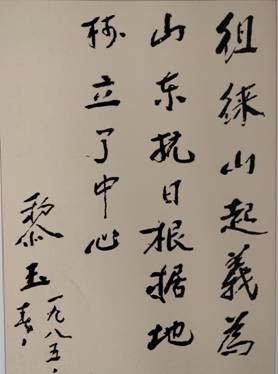 徂徕山起義為
山东抗日根据地
树立了中心
黎玉
一九八五、春、